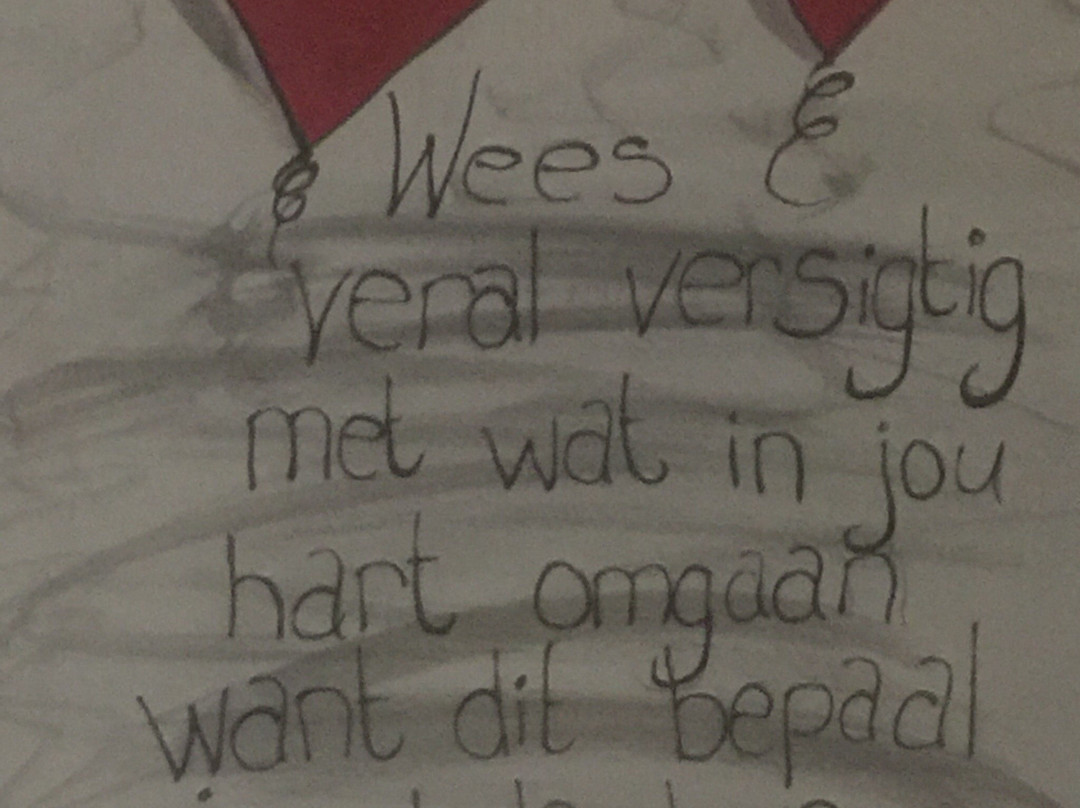 Wees
veral versigtig
met wat in jou
hart omgaan
want dit bepaal